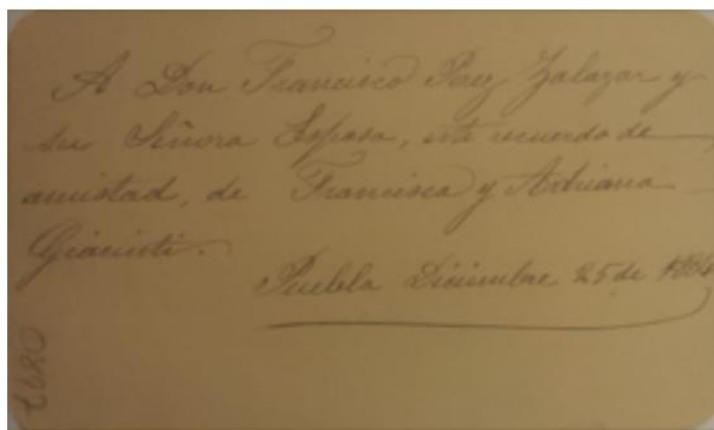 A Don Francisco Paez Zalazar y
su Señora Esposa, este recuerdo de
amistad, de Francisca y Adriana
Giacinti.
Puebla Diciembre 25 de